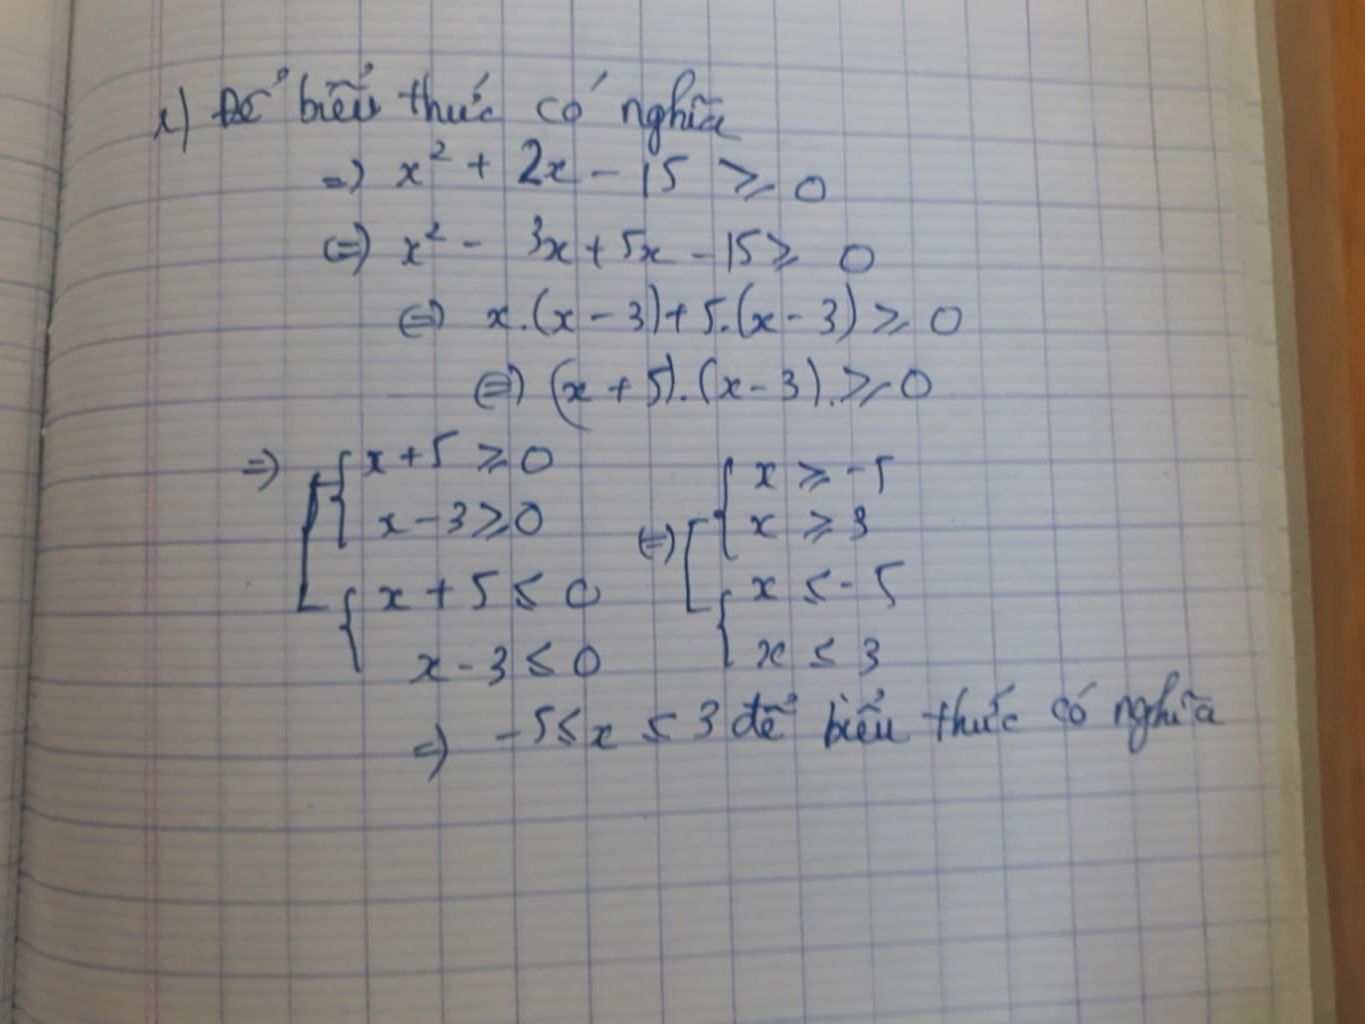 x) Để biểu thức có nghĩa
=) x² + 2x - 15 ⩾ 0
(=) x² - 3x + 5x - 15 ⩾ 0
(=) x.(x - 3) + 5.(x - 3) ⩾ 0
(=) (x + 5).(x - 3). ⩾ 0
=) [ { x + 5 ⩾ 0 (=) [ { x ⩾ -5
x - 3 ⩾ 0 x ⩾ 3
{ x + 5 ⩽ 0 { x ⩽ -5
x - 3 ⩽ 0 x ⩽ 3
=) -5 ⩽ x ⩽ 3 để biểu thức có nghĩa